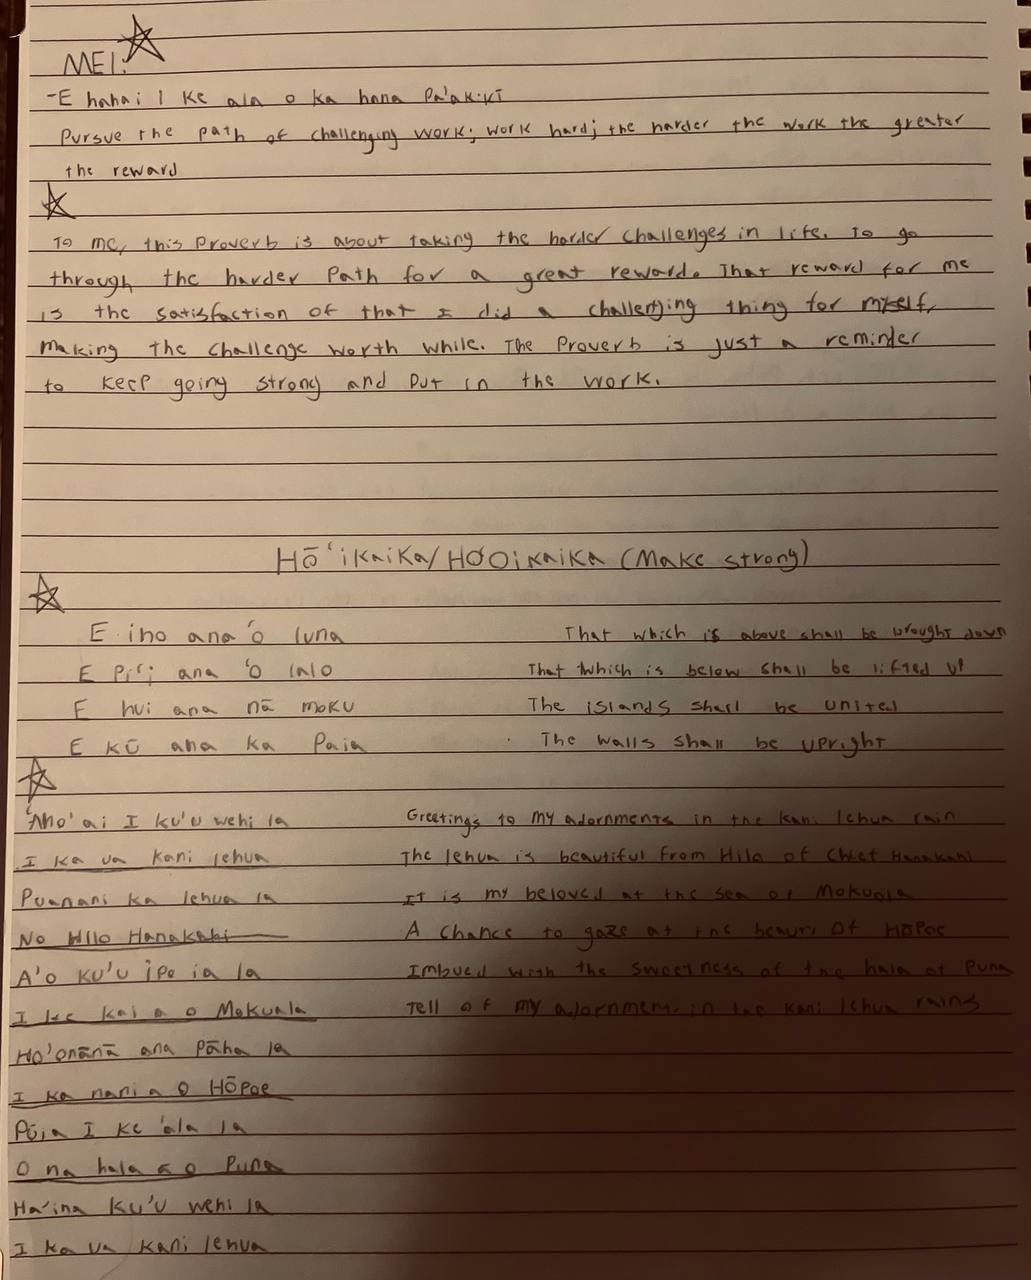 MEI:
-E hahai I ke ala o ka hana Pa'akikī
Pursue the path of challenging work; work hard; the harder the work the greater
the reward
To me, this Proverb is about taking the harder challenges in life. To go
through the harder Path for a great reward. That reward for me
is the satisfaction of that I did a challenging thing for myself,
making the challenge worth while. The Proverb is just a reminder
to keep going strong and put in the work.
Hō'ikaika/HO'Oikaika (Make strong)
E iho ana 'o luna That which is above shall be brought down
E Pi'i ana 'o lalo That which is below shall be lifted up
E hui ana nā moku The islands shall be united
E kū ana ka Paia The walls shall be upright
'Ano'ai I ku'u wehi la Greetings to my adornments in the kani lehua rain
I ka ua kani lehua The lehua is beautiful from Hilo of Chief Hanakahi
Puanani ka lehua la It is my beloved at the sea of Mokuola
No Hilo Hanakahi A chance to gaze at the beauty of Hōpoe
A'o ku'u ipo ia la Imbued with the sweetness of the hala of Puna
I ke kai a o Mokuala Tell of my adornments in the kani lehua rains
Ho'onānā ana pāha la
I ka nani a o Hōpoe
Pōia I ke 'ala la
O na hala a o Puna
Ha'ina ku'u wehi la
I ka ua kani lehua